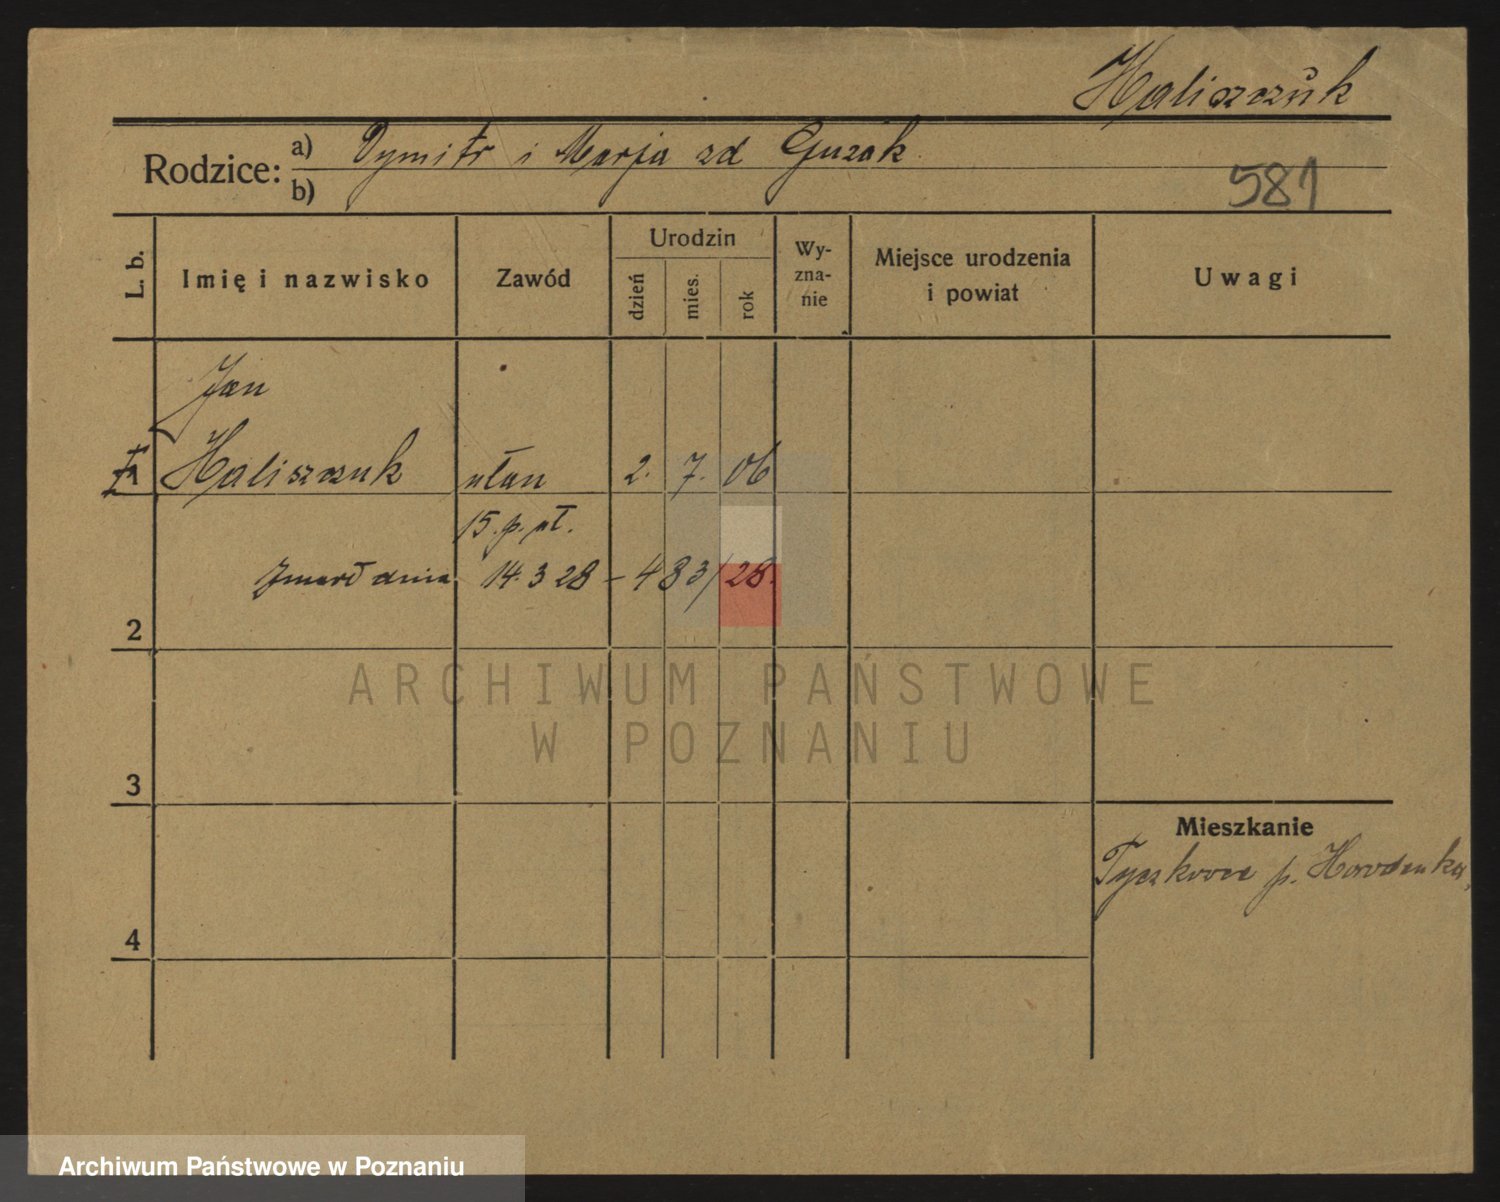 Haliszczuk
Rodzice: a) Dymitr i Marja zd Guzak
b)
581
L. b.
Imię i nazwisko
Zawód
Urodzin
dzień
mies.
rok
Wy-
zna-
nie
Miejsce urodzenia
i powiat
Uwagi
Jan
Haliszczuk ułan 2. 7. 06
15. p. uł.
Zmarł dnia 14.3 28 – 483/28.
2
ARCHIWUM PAŃSTWOWE
W POZNANIU
3
Mieszkanie
Tyszkowce p. Horodenka,
4
Archiwum Państwowe w Poznaniu